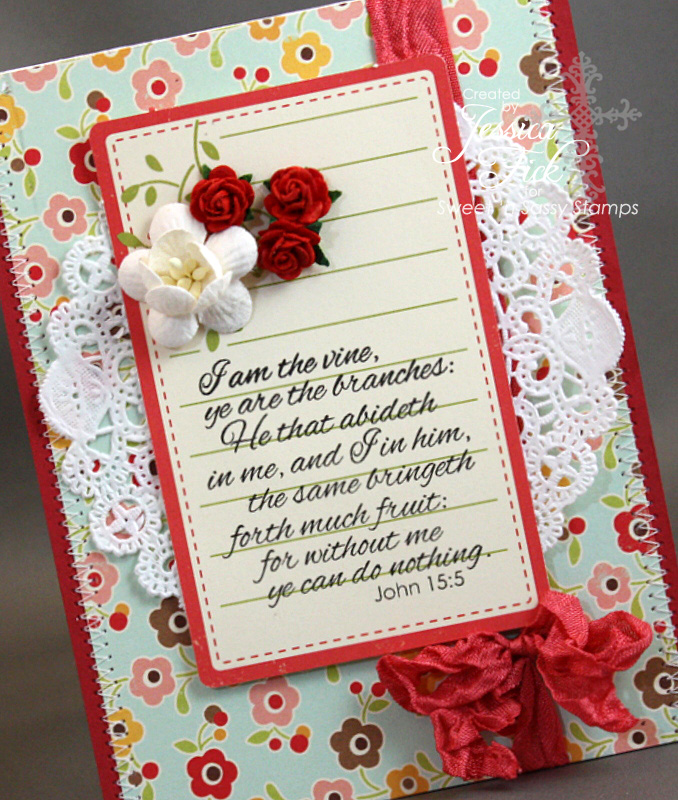 Created
by
Jessica
Fick
for
Sweet n Sassy Stamps
I am the vine,
ye are the branches:
He that abideth
in me, and I in him,
the same bringeth
forth much fruit:
for without me
ye can do nothing.
John 15:5